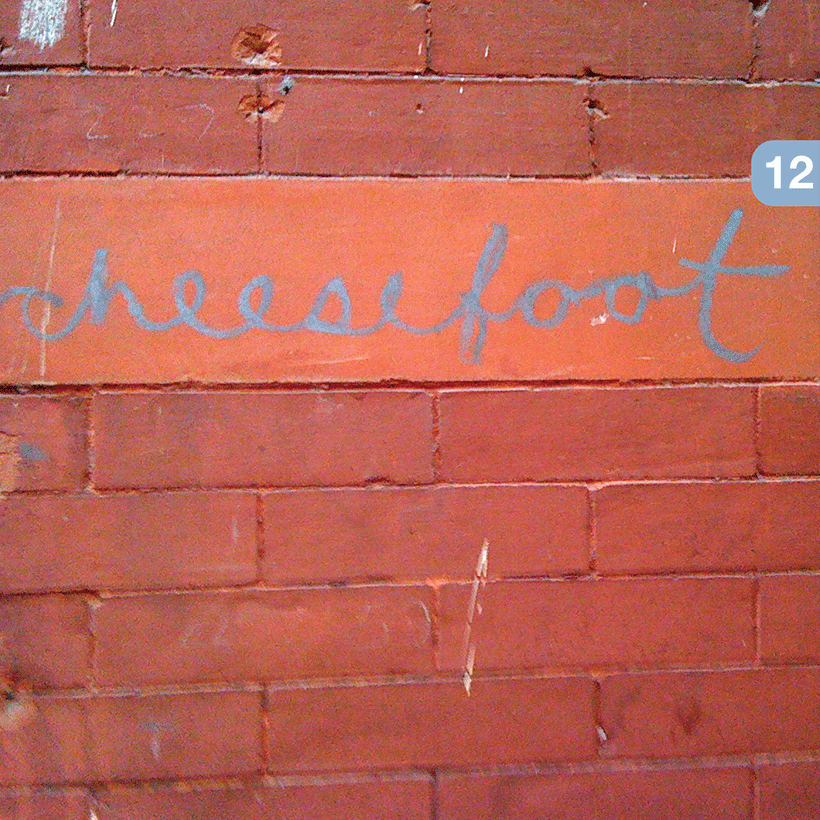 12
cheesefoot